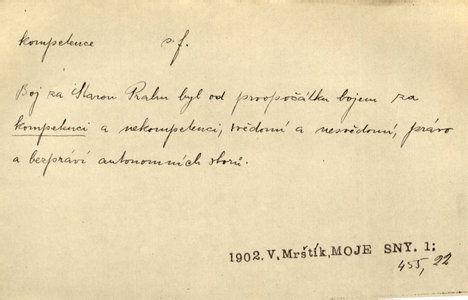 kompetence s. f.
Boj za Starou Prahu byl od prvopočátku bojem za
kompetenci a nekompetenci, svědomí a nesvědomí, právo
a bezpráví autonomních sborů.
1902. V. Mrštík, MOJE SNY. 1;
455, 22